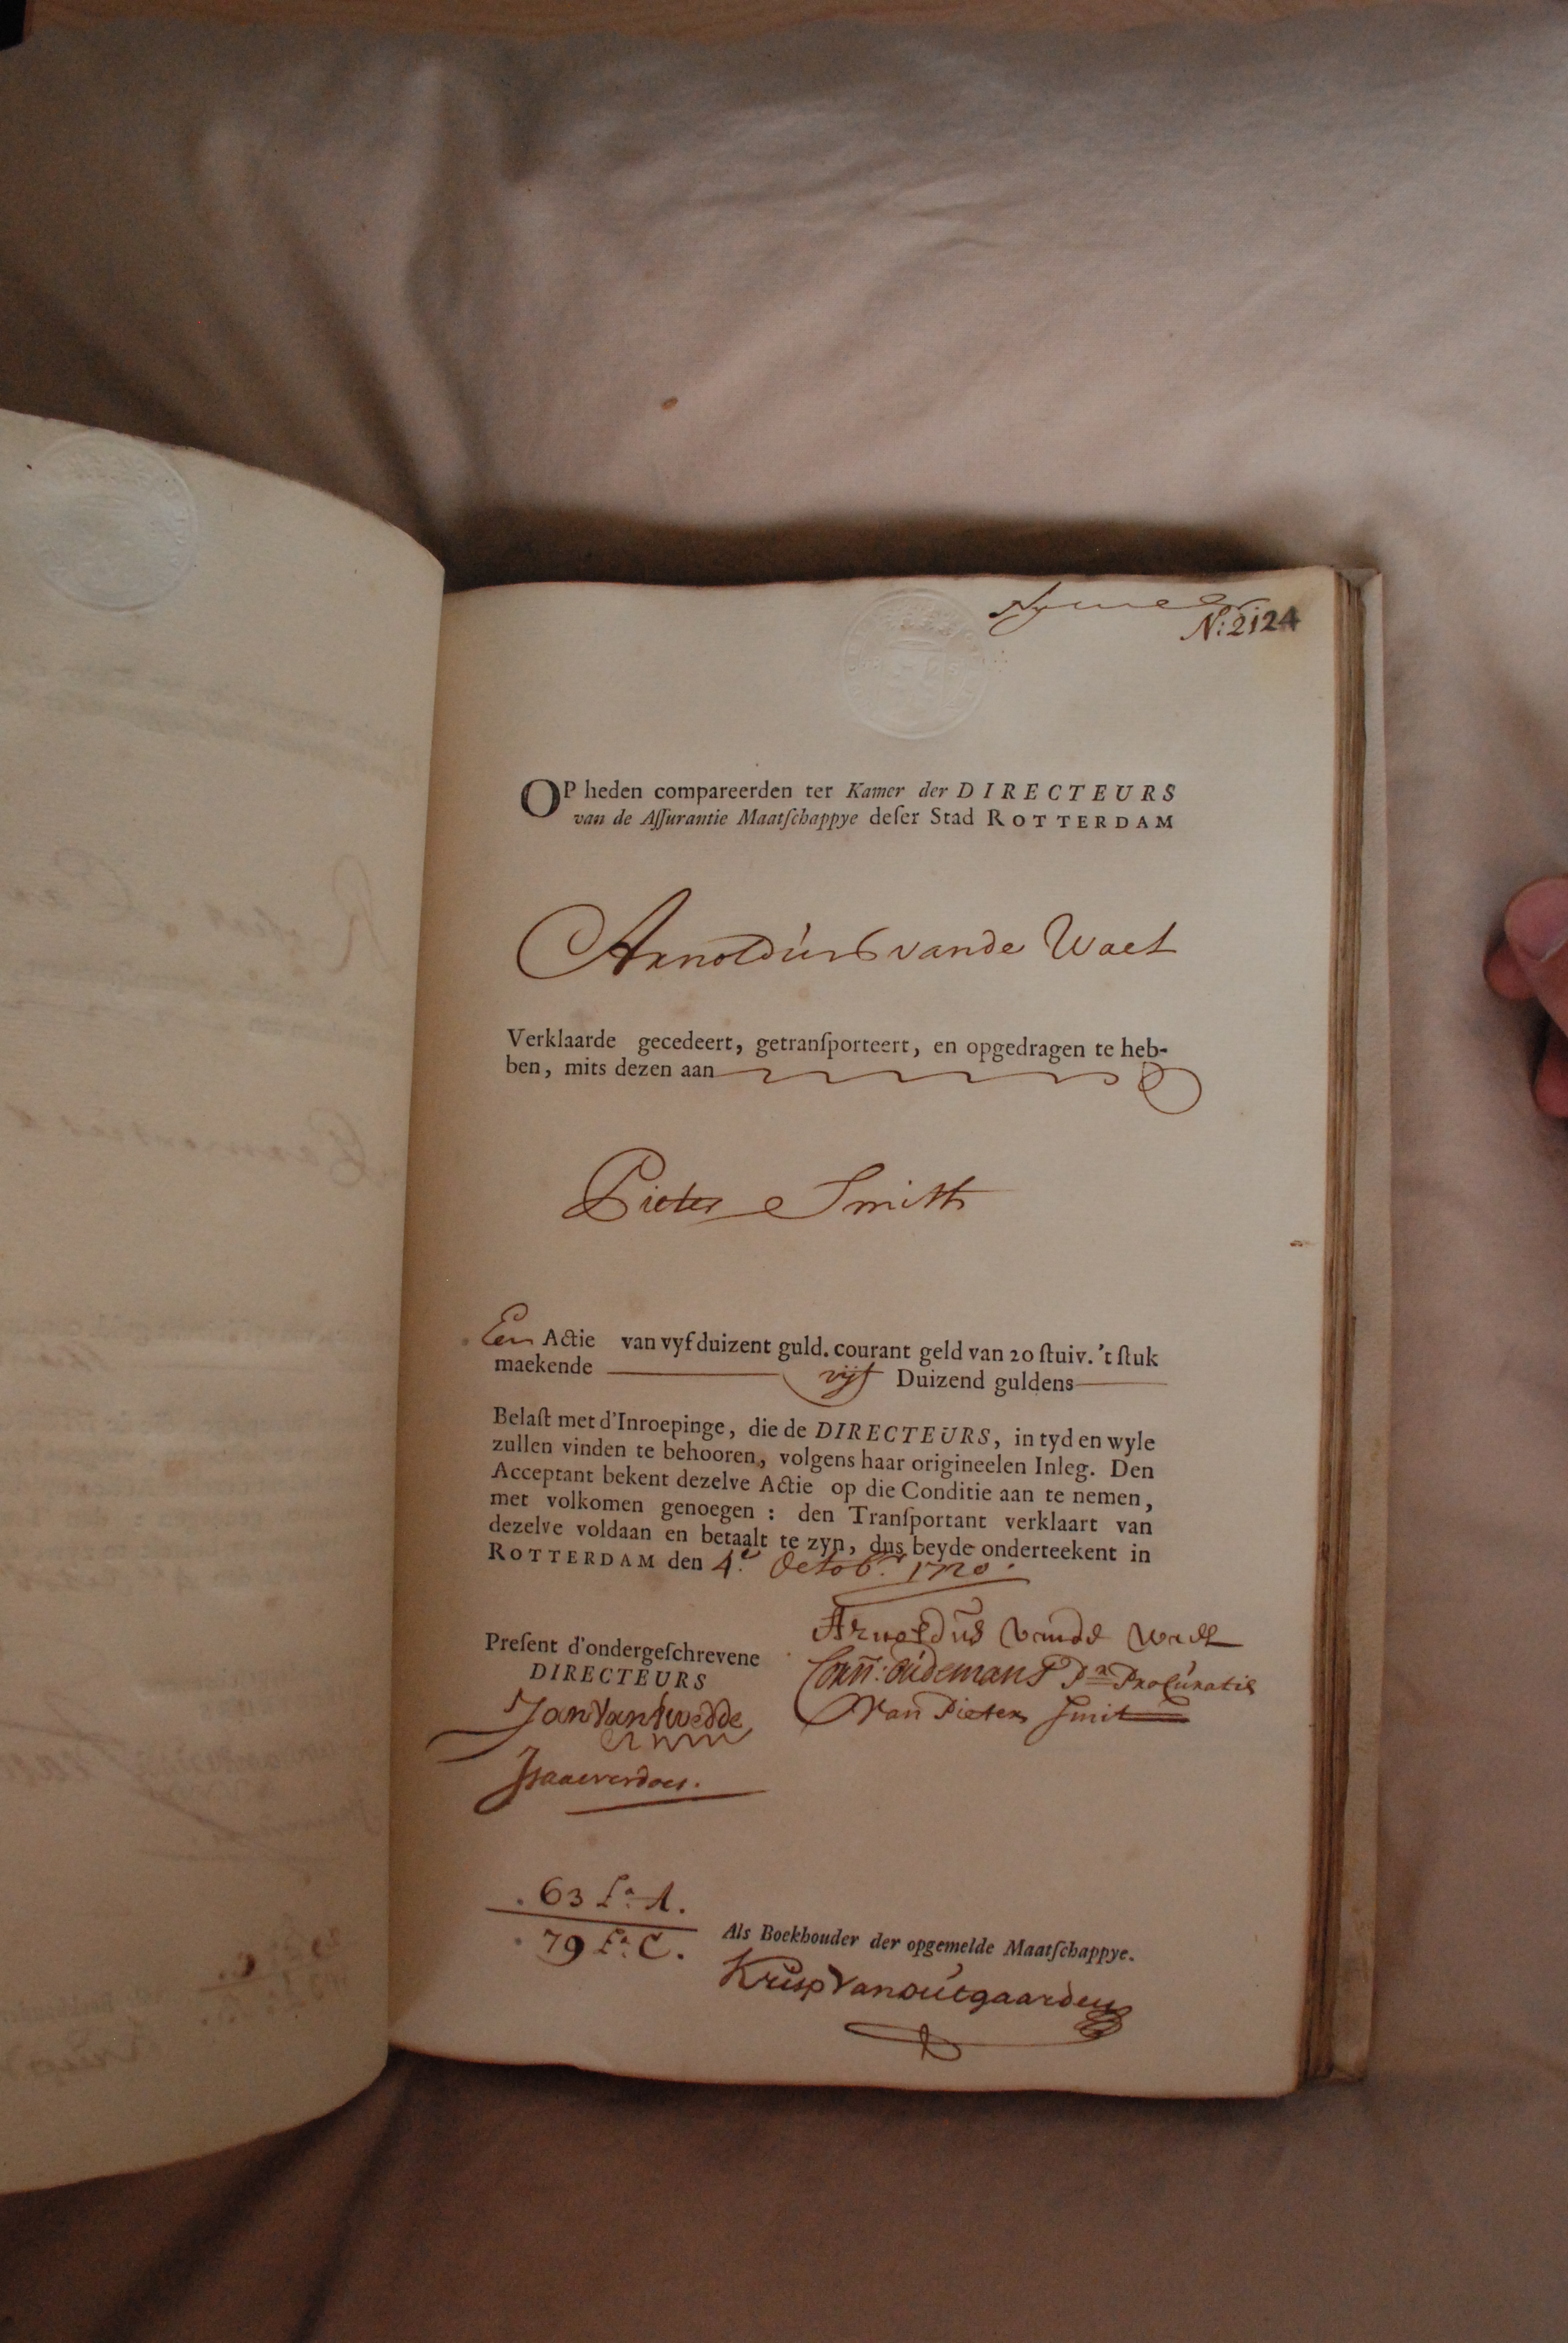 N: 2124
OP heden compareerden ter Kamer der DIRECTEURS
van de Aſſurantie Maatſchappye deſer Stad ROTTERDAM
Arnoldus vande Waet
Verklaarde gecedeert, getranſporteert, en opgedragen te heb-
ben, mits dezen aan
Pieter Smith
Een Actie van vyf duizent guld. courant geld van 20 ſtuiv. 't ſtuk
maekende vijf Duizend guldens
Belaſt met d'Inroepinge, die de DIRECTEURS, in tyd en wyle
zullen vinden te behooren, volgens haar origineelen Inleg. Den
Acceptant bekent dezelve Actie op die Conditie aan te nemen,
met volkomen genoegen : den Tranſportant verklaart van
dezelve voldaan en betaalt te zyn, dus beyde onderteekent in
ROTTERDAM den 4e. Octob.r 1720.
Arnoldus vande Waet
Preſent d'ondergeſchrevene
DIRECTEURS
Corn: Oudemans Pr Procuratie
Van Pieter Smit
Jan Van Twedde
Isaac Verdoes.
63 Lª A.
79 Lª C.
Als Boekhouder der opgemelde Maatſchappye.
Krisp Van Outgaarden